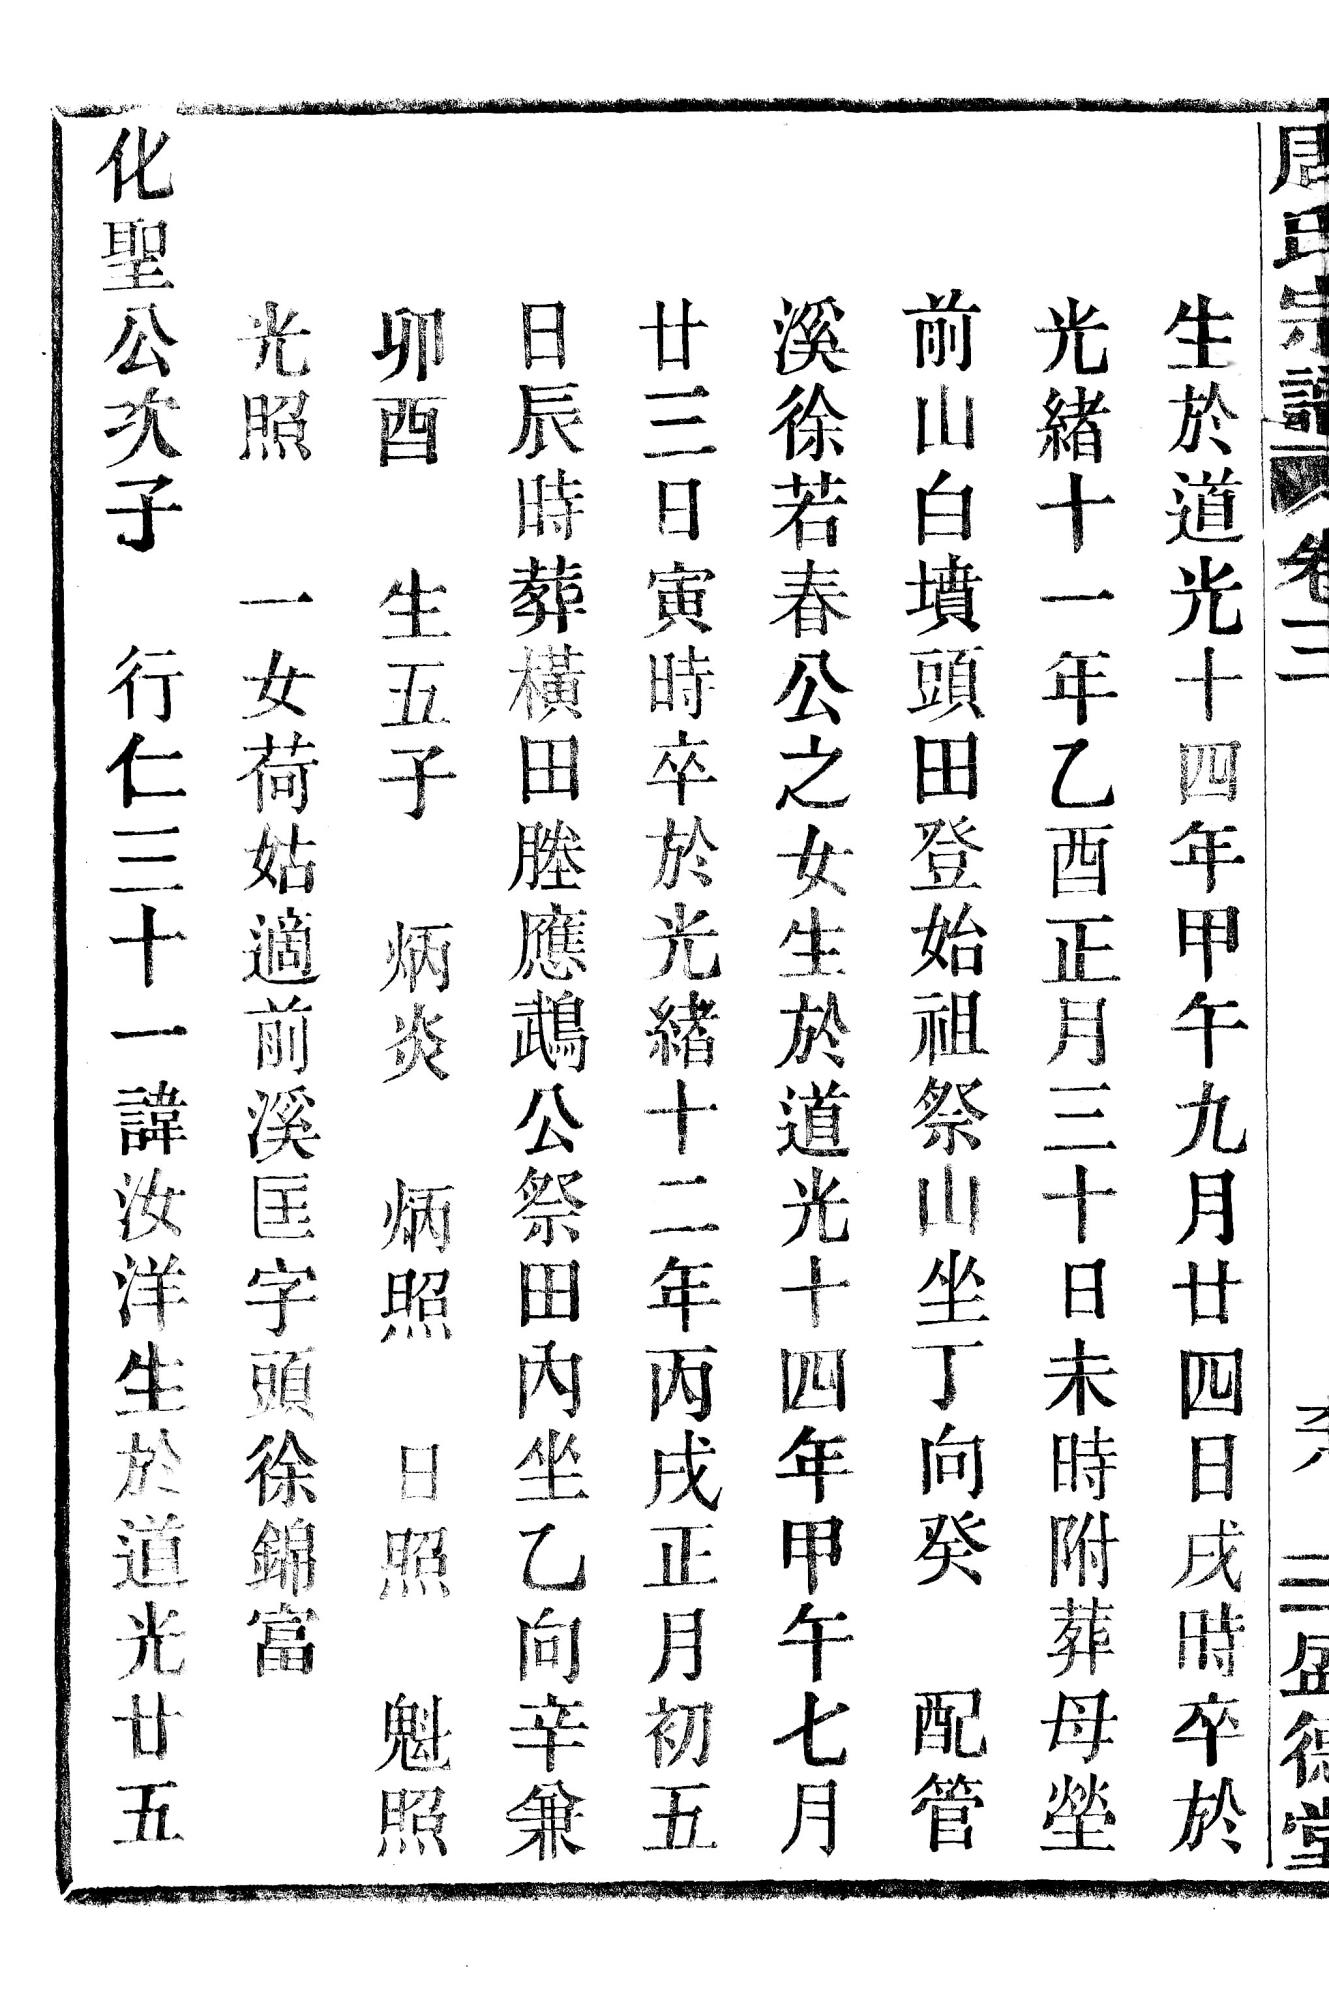 氏宗譜 卷三 盛德堂
生於道光十四年甲午九月廿四日戌時卒於
光緒十一年乙酉正月三十日未時附葬母塋
前山白墳頭田登始祖祭山坐丁向癸 配管
溪徐若春公之女生於道光十四年甲午七月
廿三日寅時卒於光緒十二年丙戌正月初五
日辰時葬橫田塍應鵡公祭田內坐乙向辛兼
卯酉 生五子 炳炎 炳照 日照 魁照
光照 一女荷姑適前溪匡字頭徐錦富
化聖公次子 行仁三十一諱汝洋生於道光廿五